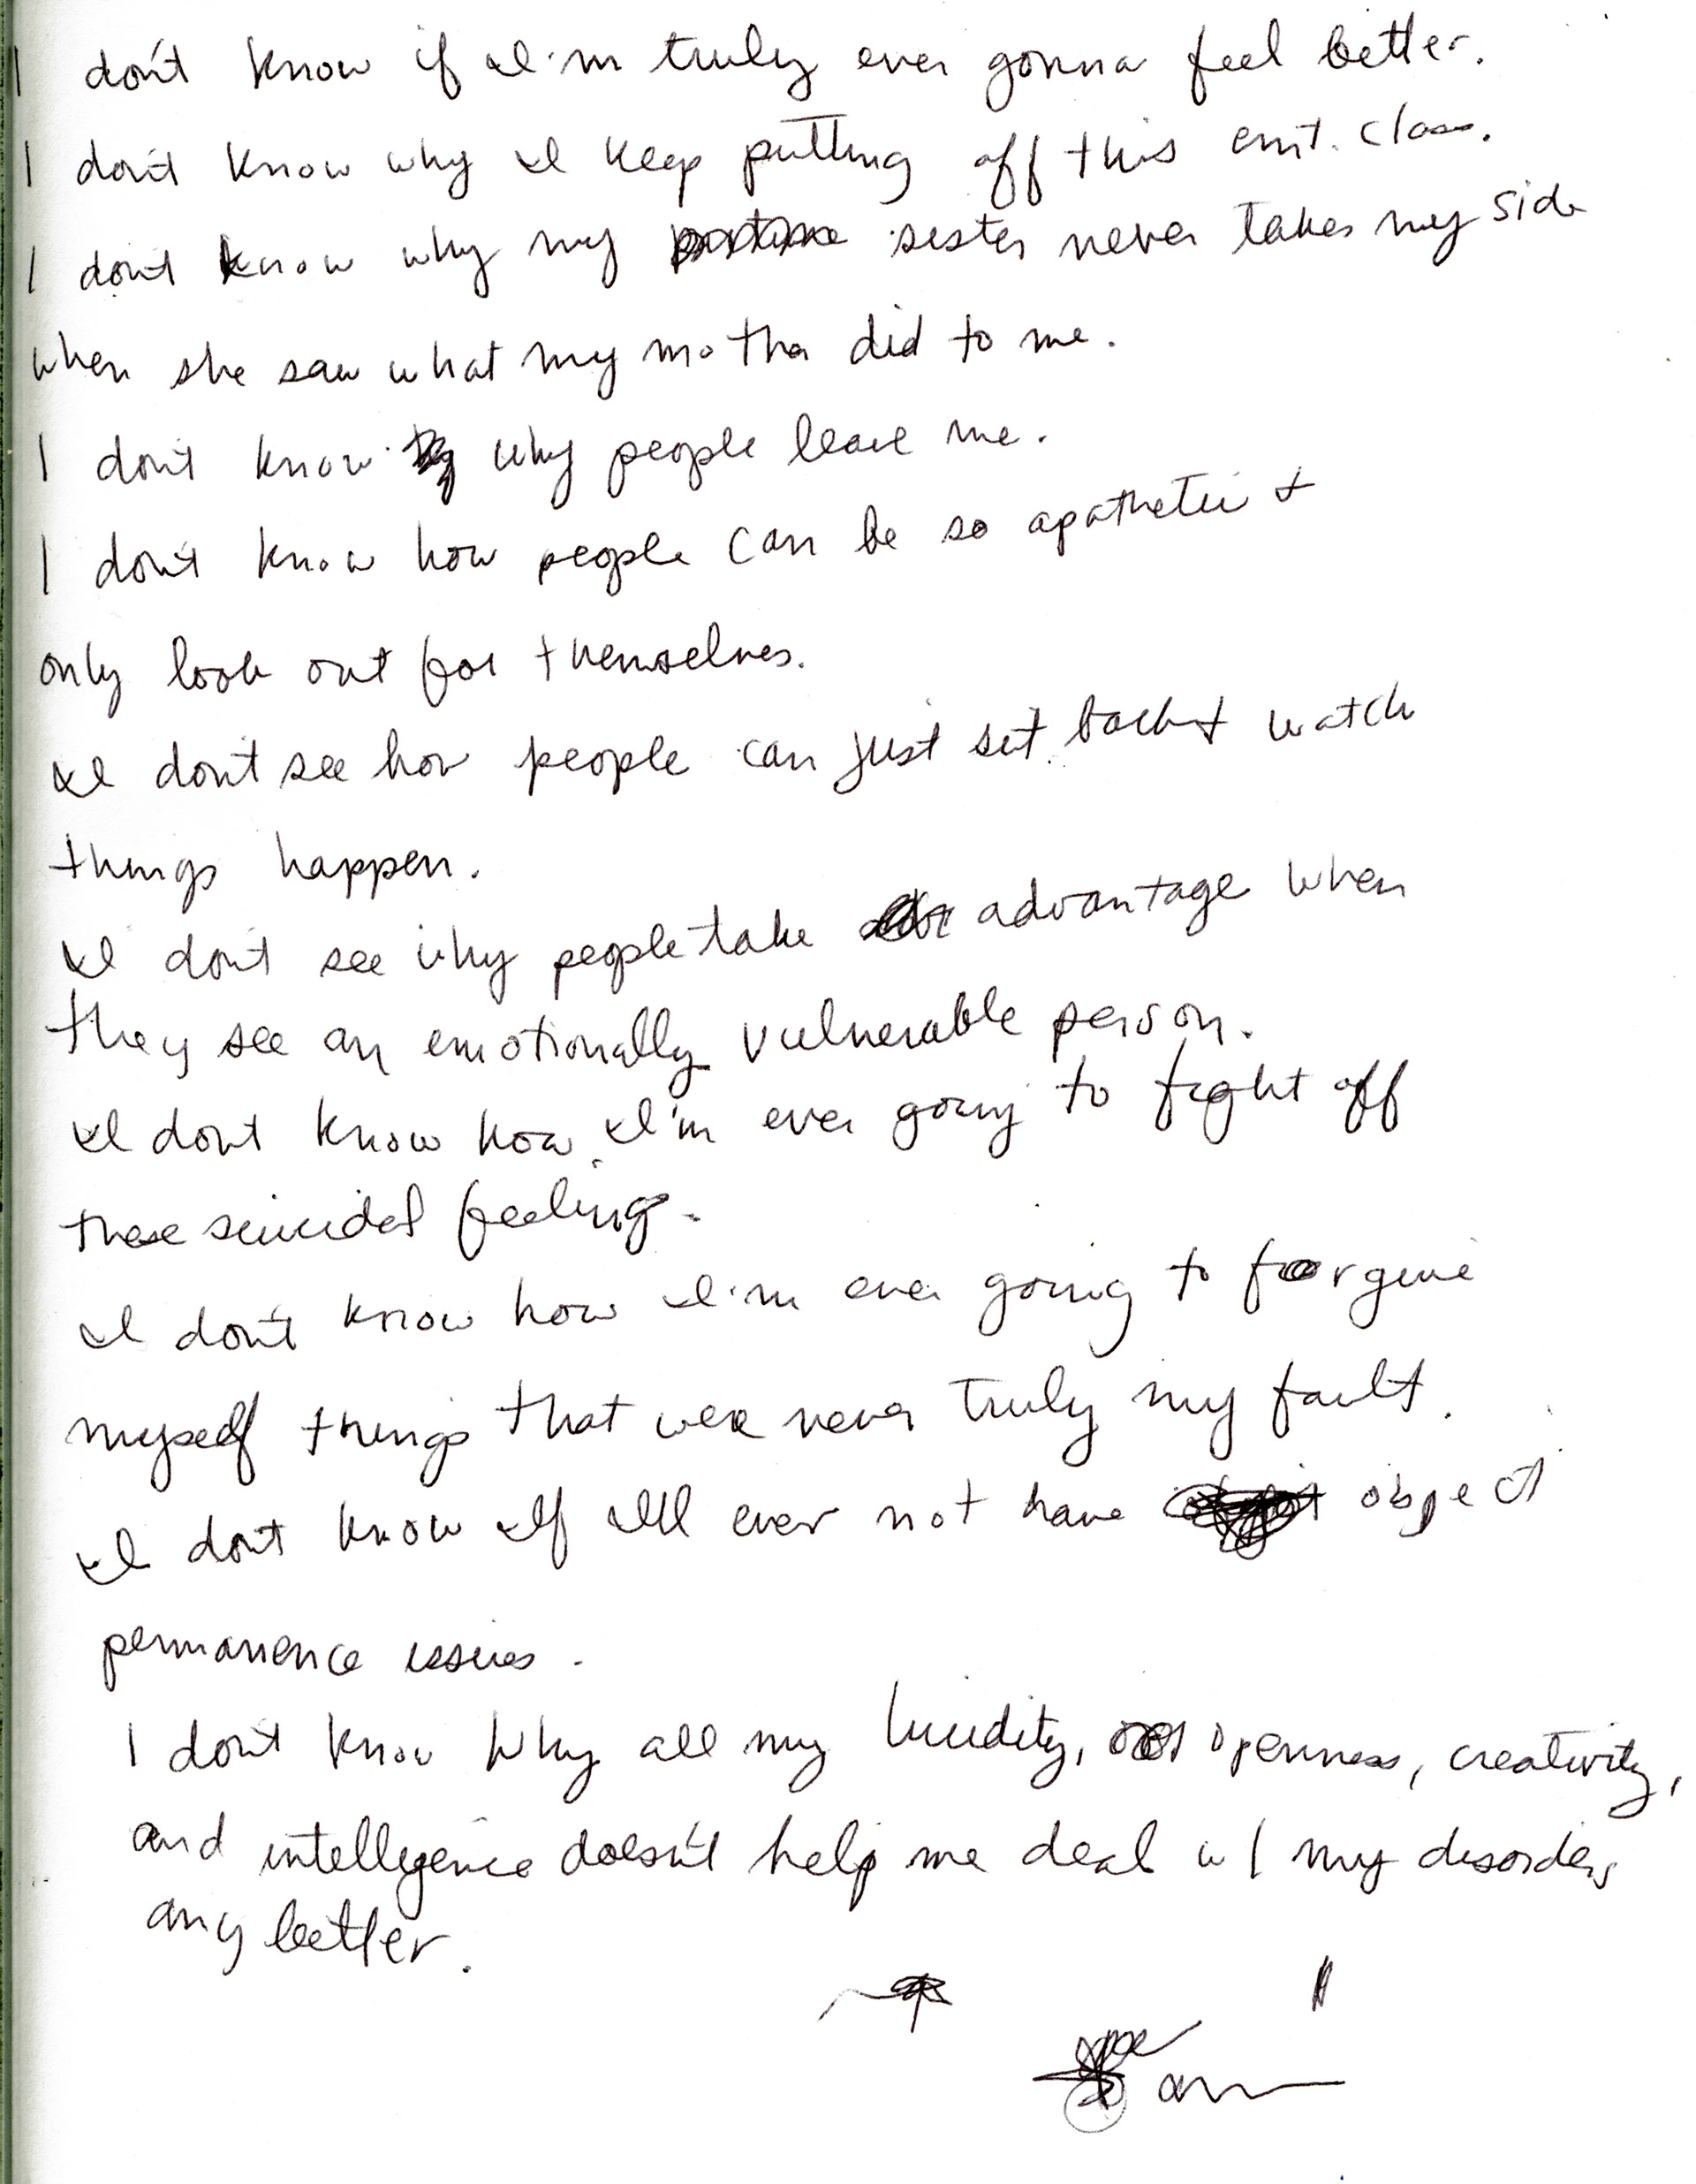 I don't know if I'm truly ever gonna feel better.
I don't know why I keep putting off this emt. class.
I don't know why my sister never takes my side
when she saw what my mother did to me.
I don't know why people leave me.
I don't know how people can be so apathetic &
only look out for themselves.
I don't see how people can just sit back & watch
things happen.
I don't see why people take advantage when
they see an emotionally vulnerable person.
I dont know how I'm ever going to fight off
these suicidal feelings.
I don't know how I'm ever going to forgive
myself things that were never truly my fault.
I don't know if I'll ever not have object
permanence issues.
I don't know why all my lucidity, openness, creativity,
and intelligence doesn't help me deal w/ my disorders
any better.